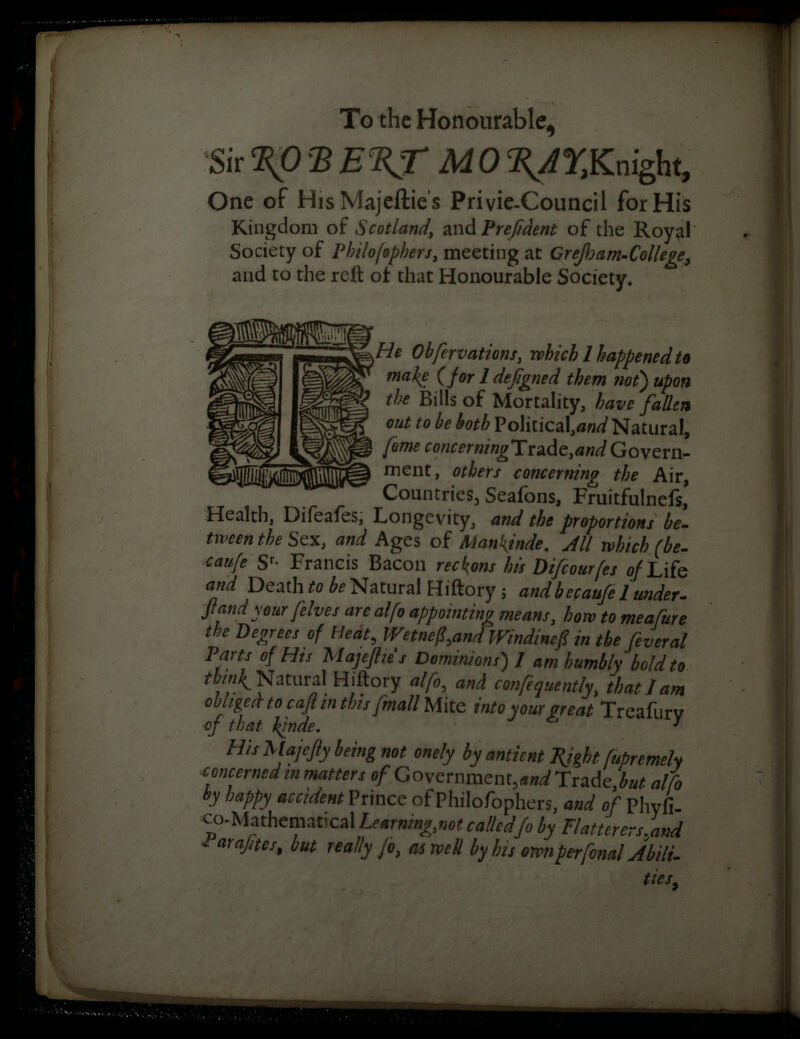 To the Honourable,
Sir ROBERT MORAY, Knight,
One of His Majeſtie's Privie-Council for His
Kingdom of Scotland, and Preſident of the Royal
Society of Philoſophers, meeting at Greſham-College,
and to the reſt of that Honourable Society.
THe Obſervations, which I happened to
make (for I deſigned them not) upon
the Bills of Mortality, have fallen
out to be both Political, and Natural,
ſome concerning Trade, and Govern-
ment, others concerning the Air,
Countries, Seaſons, Fruitfulneſs,
Health, Diſeaſes, Longevity, and the proportions be-
tween the Sex, and Ages of Mankinde. All which (be-
cauſe Sr. Francis Bacon reckons his Diſcourſes of Life
and Death to be Natural Hiſtory; and becauſe I under-
ſtand your ſelves are alſo appointing means, how to meaſure
the Degrees of Heat, Wetneſs, and Windineſs in the ſeveral
Parts of His Majeſtie's Dominions) I am humbly bold to
think Natural Hiſtory alſo, and conſequently, that I am
obliged to caſt in this ſmall Mite into your great Treaſury
of that kinde.
His Majeſty being not onely by antient Right ſupremely
concerned in matters of Government, and Trade, but alſo
by happy accident Prince of Philoſophers, and of Phyſi-
co-Mathematical Learning, not called ſo by Flatterers, and
Paraſites, but really ſo, as well by his own perſonal Abili-
ties,